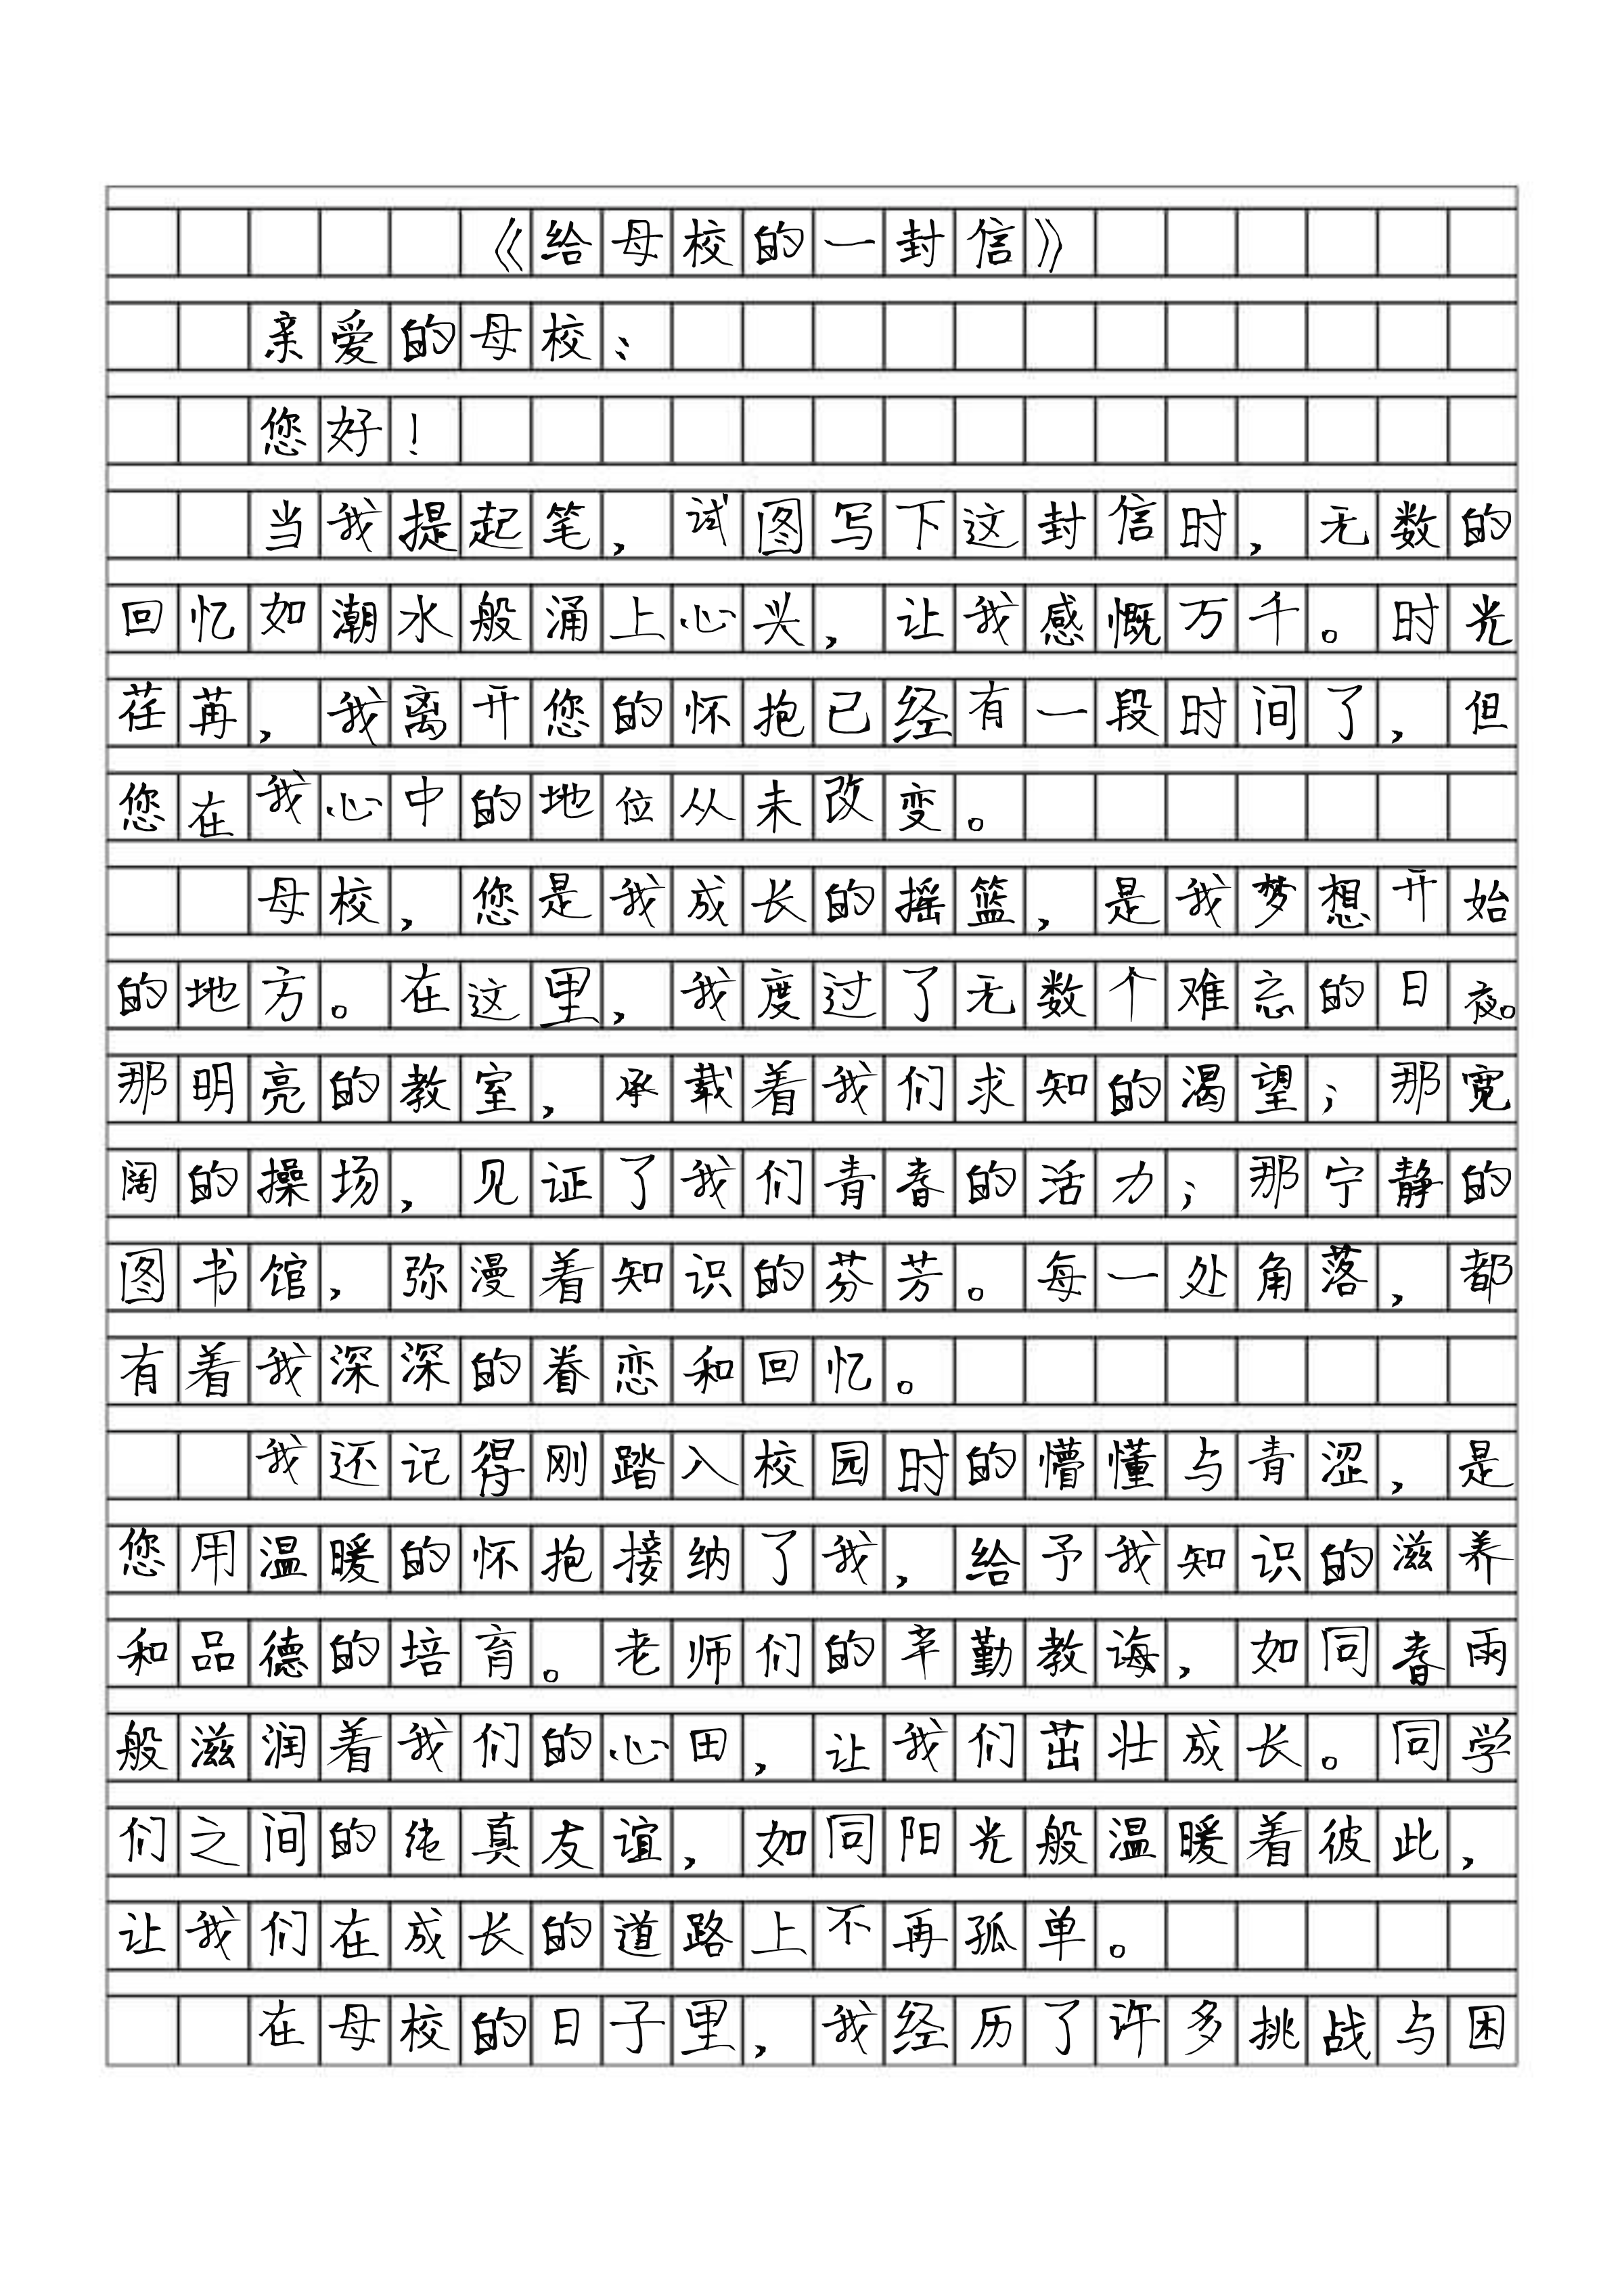 《给母校的一封信》
亲爱的母校：
您好！
当我提起笔，试图写下这封信时，无数的
回忆如潮水般涌上心头，让我感慨万千。时光
荏苒，我离开您的怀抱已经有一段时间了，但
您在我心中的地位从未改变。
母校，您是我成长的摇篮，是我梦想开始
的地方。在这里，我度过了无数个难忘的日夜。
那明亮的教室，承载着我们求知的渴望；那宽
阔的操场，见证了我们青春的活力；那宁静的
图书馆，弥漫着知识的芬芳。每一处角落，都
有着我深深的眷恋和回忆。
我还记得刚踏入校园时的懵懂与青涩，是
您用温暖的怀抱接纳了我，给予我知识的滋养
和品德的培育。老师们的辛勤教诲，如同春雨
般滋润着我们的心田，让我们茁壮成长。同学
们之间的纯真友谊，如同阳光般温暖着彼此，
让我们在成长的道路上不再孤单。
在母校的日子里，我经历了许多挑战与困